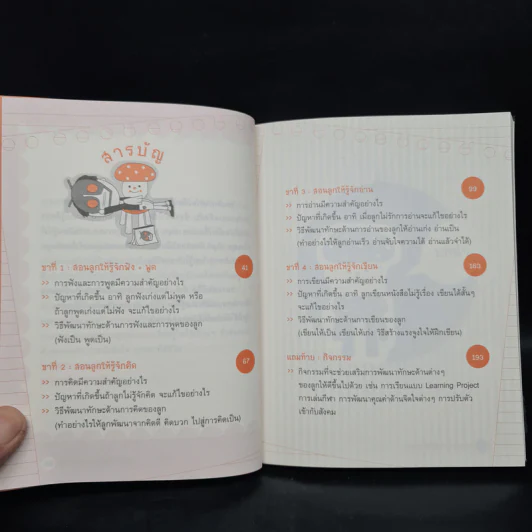 สารบัญ
ขาที่ 1 : สอนลูกให้รู้จักฟัง + พูด
41
>> การฟังและการพูดมีความสำคัญอย่างไร
>> ปัญหาที่เกิดขึ้น อาทิ ลูกฟังเก่งแต่ไม่พูด หรือ
ถ้าลูกพูดเก่งแต่ไม่ฟัง จะแก้ไขอย่างไร
>> วิธีพัฒนาทักษะด้านการฟังและการพูดของลูก
(ฟังเป็น พูดเป็น)
ขาที่ 2 : สอนลูกให้รู้จักคิด
67
>> การคิดมีความสำคัญอย่างไร
>> ปัญหาที่เกิดขึ้นถ้าลูกไม่รู้จักคิด จะแก้ไขอย่างไร
>> วิธีพัฒนาทักษะด้านการคิดของลูก
(ทำอย่างไรให้ลูกพัฒนาจากคิดดี คิดบวก ไปสู่การคิดเป็น)
ขาที่ 3 : สอนลูกให้รู้จักอ่าน
>> การอ่านมีความสำคัญอย่างไร
>> ปัญหาที่เกิดขึ้น อาทิ เมื่อลูกไม่รักการอ่านจะแก้ไขอย่างไร
>> วิธีพัฒนาทักษะด้านการอ่านของลูกให้อ่านเก่ง อ่านเป็น
(ทำอย่างไรให้ลูกอ่านเร็ว อ่านจับใจความได้ อ่านแล้วจำได้)
ขาที่ 4 : สอนลูกให้รู้จักเขียน
163
>> การเขียนมีความสำคัญอย่างไร
>> ปัญหาที่เกิดขึ้น อาทิ ลูกเขียนหนังสือไม่รู้เรื่อง เขียนได้สั้นๆ
จะแก้ไขอย่างไร
>> วิธีพัฒนาทักษะด้านการเขียนของลูก
(เขียนให้เป็น เขียนให้เก่ง วิธีสร้างแรงจูงใจให้ฝึกเขียน)
แถมท้าย : กิจกรรม
193
>> กิจกรรมที่จะช่วยเสริมการพัฒนาทักษะด้านต่างๆ
ของลูกให้ดีขึ้นไปด้วย เช่น การเรียนแบบ Learning Project
การเล่นกีฬา การพัฒนาคุณค่าด้านจิตใจต่างๆ การปรับตัว
เข้ากับสังคม